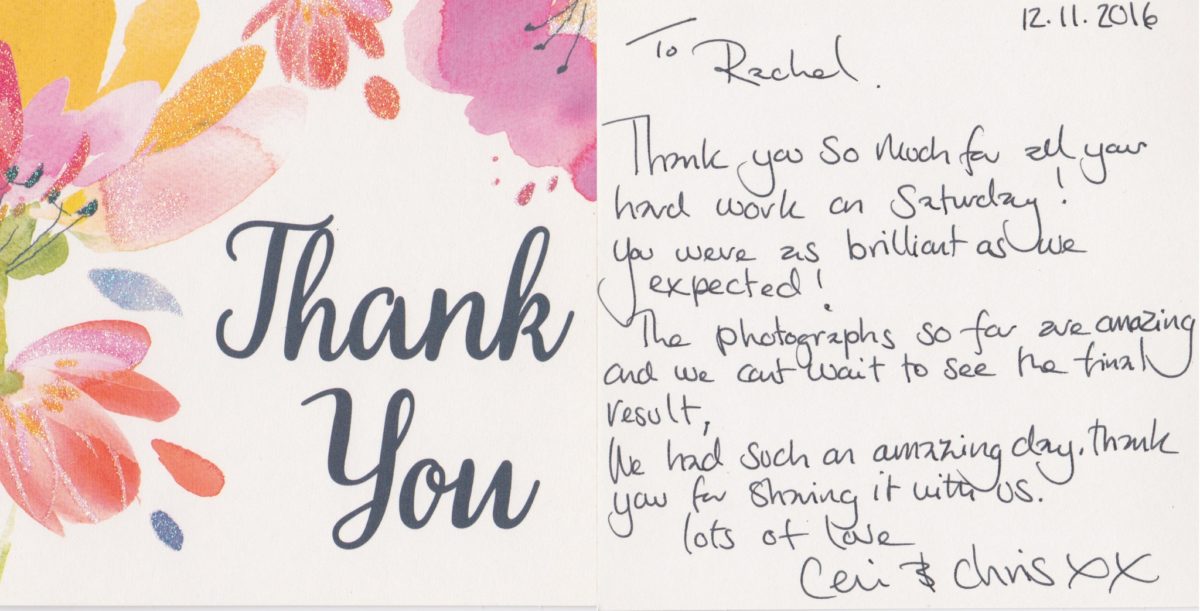 Thank
You
12.11.2016
To Rachel.
Thank you so much for all your
hard work on Saturday!
You were as brilliant as we
expected!
The photographs so far are amazing
and we cant wait to see the final
result,
We had such an amazing day. Thank
you for sharing it with us.
lots of love
Ceri & Chris xx